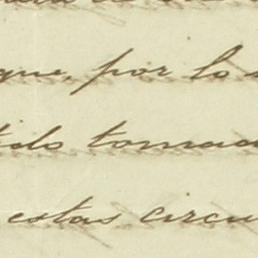 que, por lo
tido tomad
estas circu